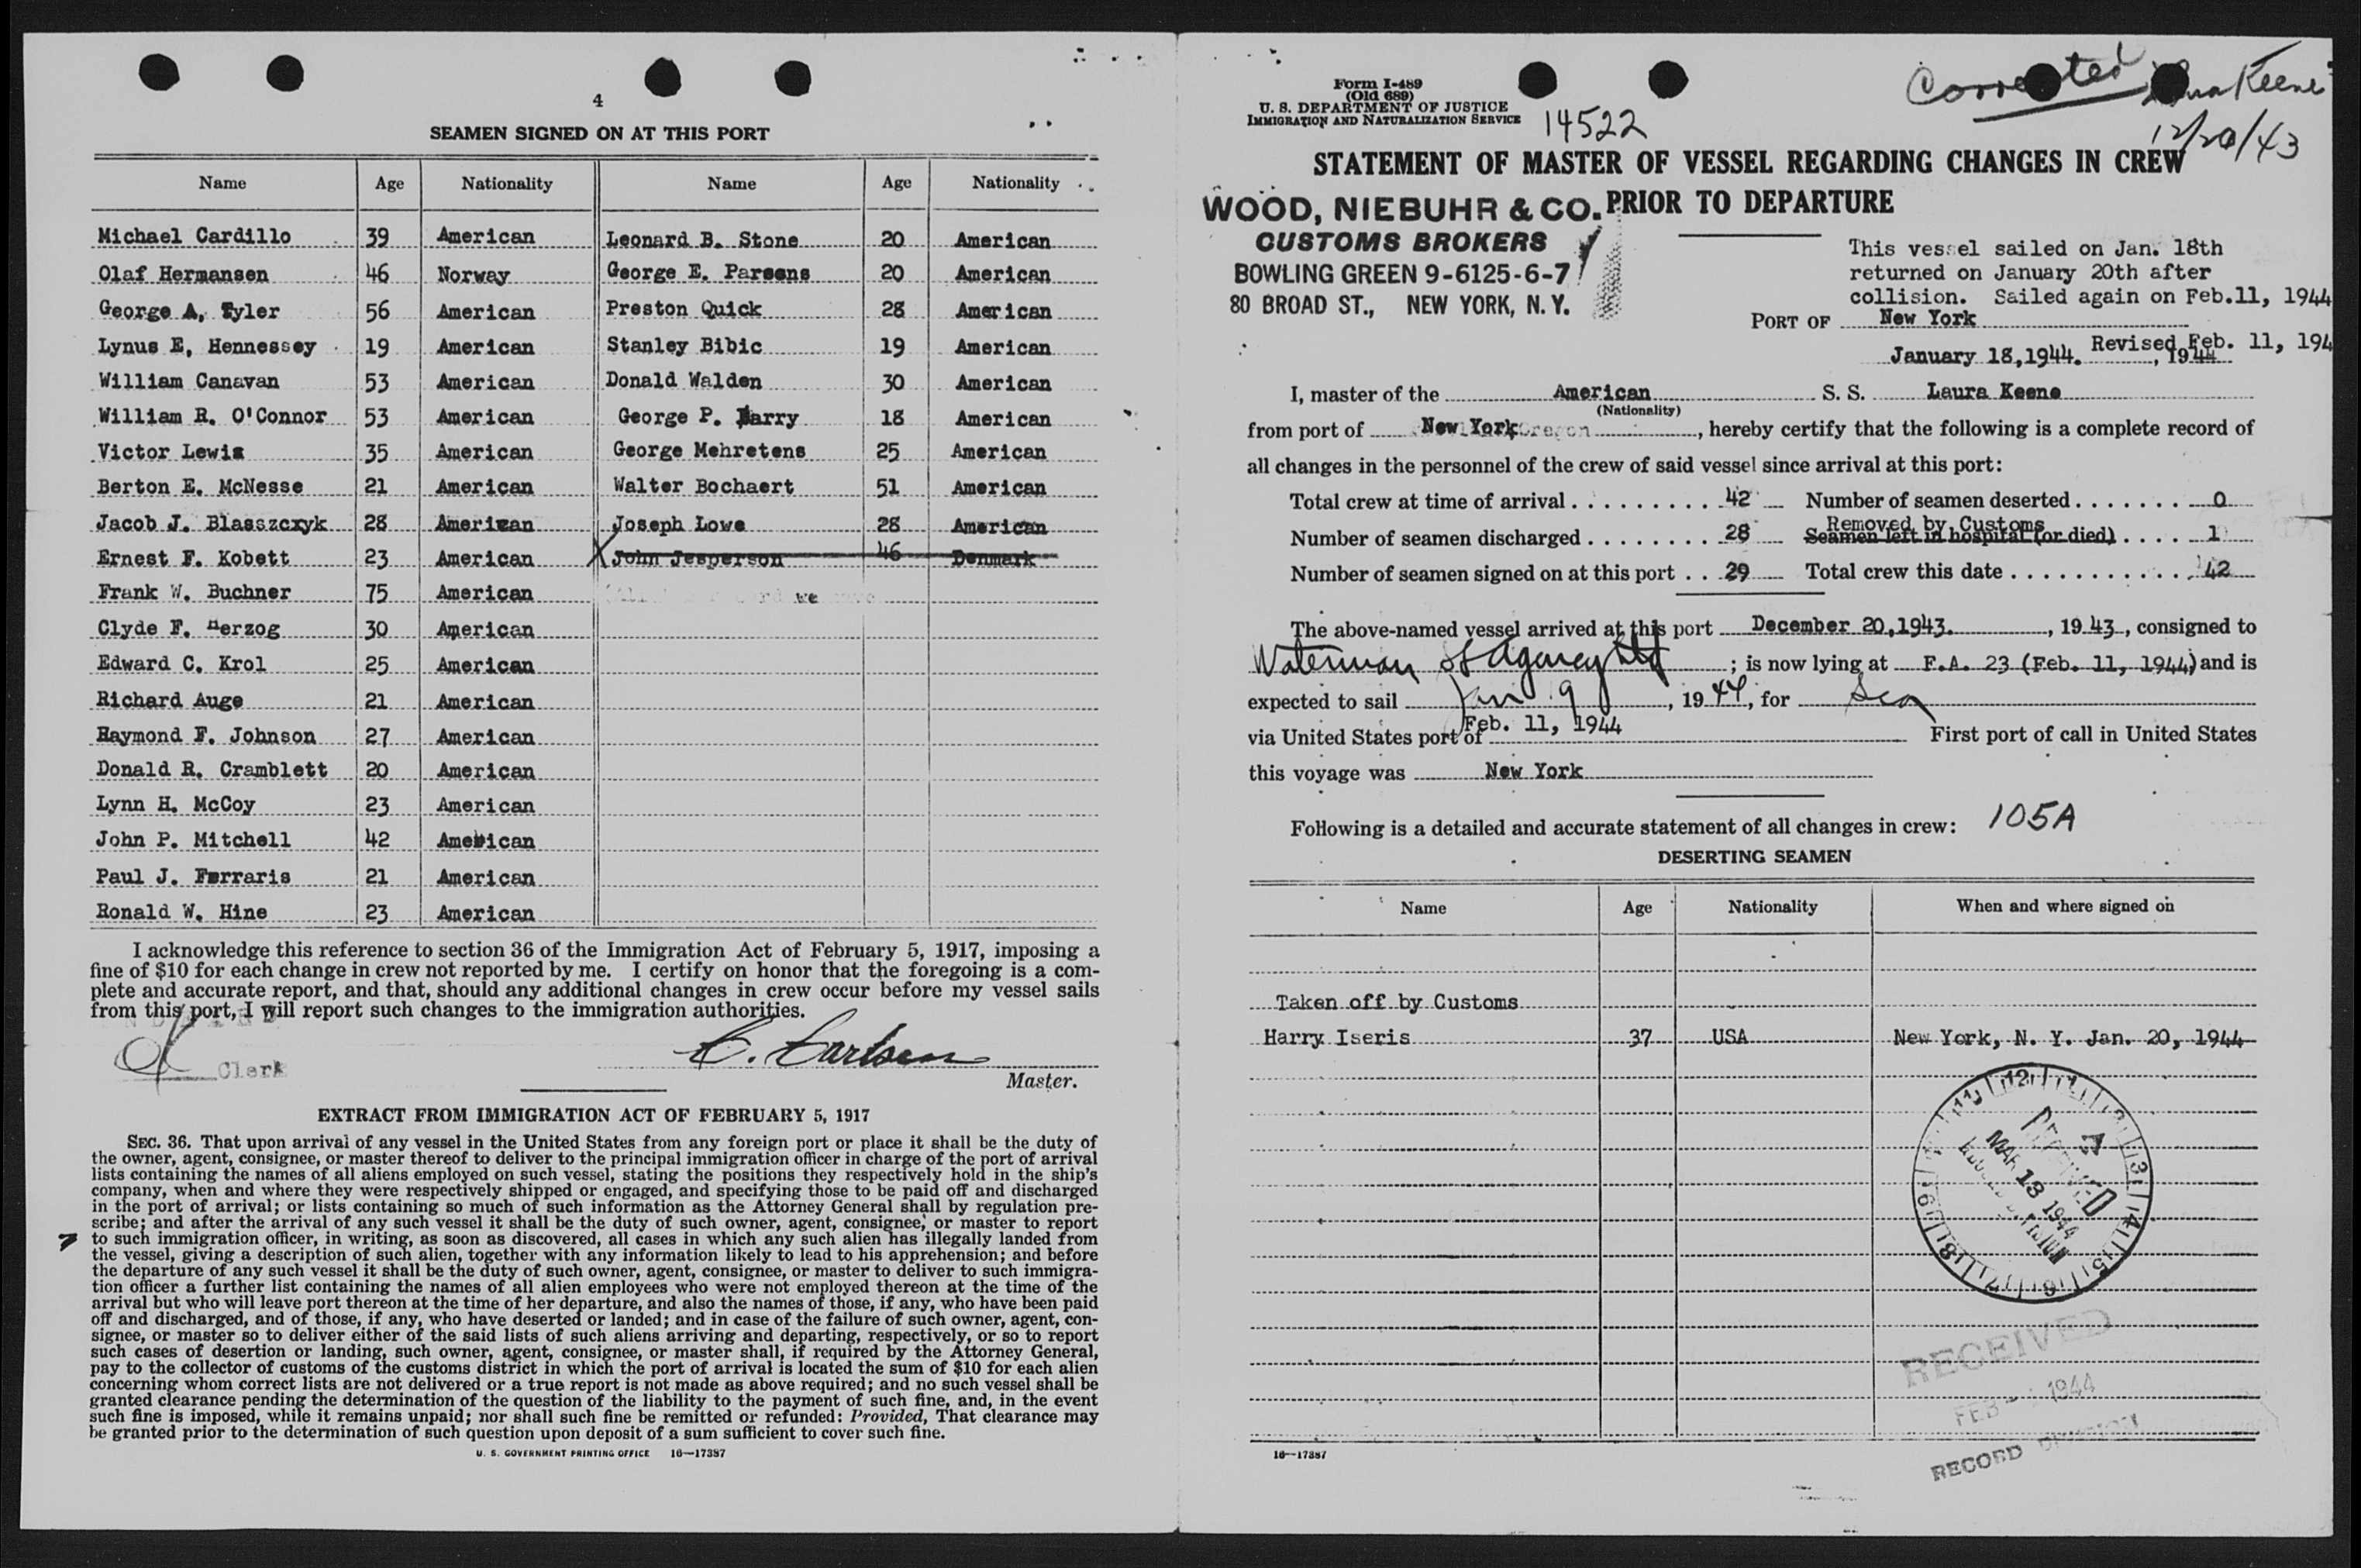 4
SEAMEN SIGNED ON AT THIS PORT
Name Age Nationality Name Age Nationality
Michael Cardillo 39 American Leonard B. Stone 20 American
Olaf Hermansen 46 Norway George E. Parsons 20 American
George A. Tyler 56 American Preston Quick 28 American
Lynus E, Hennessey 19 American Stanley Bibic 19 American
William Canavan 53 American Donald Walden 30 American
William R. O'Connor 53 American George P. Barry 18 American
Victor Lewis 35 American George Mehretens 25 American
Berton E. McNesse 21 American Walter Bochaert 51 American
Jacob J. Blasszcxyk 28 American Joseph Lowe 28 American
Ernest F. Kobett 23 American X John Jesperson 46 Denmark
Frank W. Buchner 75 American
Clyde F. Herzog 30 American
Edward C. Krol 25 American
Richard Auge 21 American
Raymond F. Johnson 27 American
Donald R. Cramblett 20 American
Lynn H. McCoy 23 American
John P. Mitchell 42 American
Paul J. Ferraris 21 American
Ronald W. Hine 23 American
I acknowledge this reference to section 36 of the Immigration Act of February 5, 1917, imposing a
fine of $10 for each change in crew not reported by me. I certify on honor that the foregoing is a com-
plete and accurate report, and that, should any additional changes in crew occur before my vessel sails
from this port, I will report such changes to the immigration authorities.
Clerk C. Carlsen
Master.
EXTRACT FROM IMMIGRATION ACT OF FEBRUARY 5, 1917
SEC. 36. That upon arrival of any vessel in the United States from any foreign port or place it shall be the duty of
the owner, agent, consignee, or master thereof to deliver to the principal immigration officer in charge of the port of arrival
lists containing the names of all aliens employed on such vessel, stating the positions they respectively hold in the ship's
company, when and where they were respectively shipped or engaged, and specifying those to be paid off and discharged
in the port of arrival; or lists containing so much of such information as the Attorney General shall by regulation pre-
scribe; and after the arrival of any such vessel it shall be the duty of such owner, agent, consignee, or master to report
to such immigration officer, in writing, as soon as discovered, all cases in which any such alien has illegally landed from
the vessel, giving a description of such alien, together with any information likely to lead to his apprehension; and before
the departure of any such vessel it shall be the duty of such owner, agent, consignee, or master to deliver to such immigra-
tion officer a further list containing the names of all alien employees who were not employed thereon at the time of the
arrival but who will leave port thereon at the time of her departure, and also the names of those, if any, who have been paid
off and discharged, and of those, if any, who have deserted or landed; and in case of the failure of such owner, agent, con-
signee, or master so to deliver either of the said lists of such aliens arriving and departing, respectively, or so to report
such cases of desertion or landing, such owner, agent, consignee, or master shall, if required by the Attorney General,
pay to the collector of customs of the customs district in which the port of arrival is located the sum of $10 for each alien
concerning whom correct lists are not delivered or a true report is not made as above required; and no such vessel shall be
granted clearance pending the determination of the question of the liability to the payment of such fine, and, in the event
such fine is imposed, while it remains unpaid; nor shall such fine be remitted or refunded: Provided, That clearance may
be granted prior to the determination of such question upon deposit of a sum sufficient to cover such fine.
U. S. GOVERNMENT PRINTING OFFICE 16—17387
Form I-489
(Old 689)
U. S. DEPARTMENT OF JUSTICE
IMMIGRATION AND NATURALIZATION SERVICE
14522
Corrected
Keene
12/20/43
STATEMENT OF MASTER OF VESSEL REGARDING CHANGES IN CREW
PRIOR TO DEPARTURE
WOOD, NIEBUHR & CO.
CUSTOMS BROKERS
BOWLING GREEN 9-6125-6-7
80 BROAD ST., NEW YORK, N. Y.
This vessel sailed on Jan. 18th
returned on January 20th after
collision. Sailed again on Feb.11, 1944
PORT OF New York
Revised Feb. 11, 194
January 18,1944. , 1944
I, master of the American S. S. Laura Keene
(Nationality)
from port of New York Oregon, hereby certify that the following is a complete record of
all changes in the personnel of the crew of said vessel since arrival at this port:
Total crew at time of arrival 42 Number of seamen deserted 0
Number of seamen discharged 28 Removed by Customs Seamen left in hospital (or died) 1
Number of seamen signed on at this port 29 Total crew this date 42
The above-named vessel arrived at this port December 20,1943. , 1943, consigned to
Waterman SS Agency Ltd ; is now lying at F.A. 23 (Feb. 11, 1944) and is
expected to sail Jan 19, 1944, for Sea
Feb. 11, 1944
via United States port of First port of call in United States
this voyage was New York
Following is a detailed and accurate statement of all changes in crew: 105A
DESERTING SEAMEN
Name Age Nationality When and where signed on
Taken off by Customs
Harry Iseris 37 USA New York, N. Y. Jan. 20, 1944
RECEIVED
MAR 13 1944
RECEIVED
FEB 1944
RECORD DIVISION
16—17387